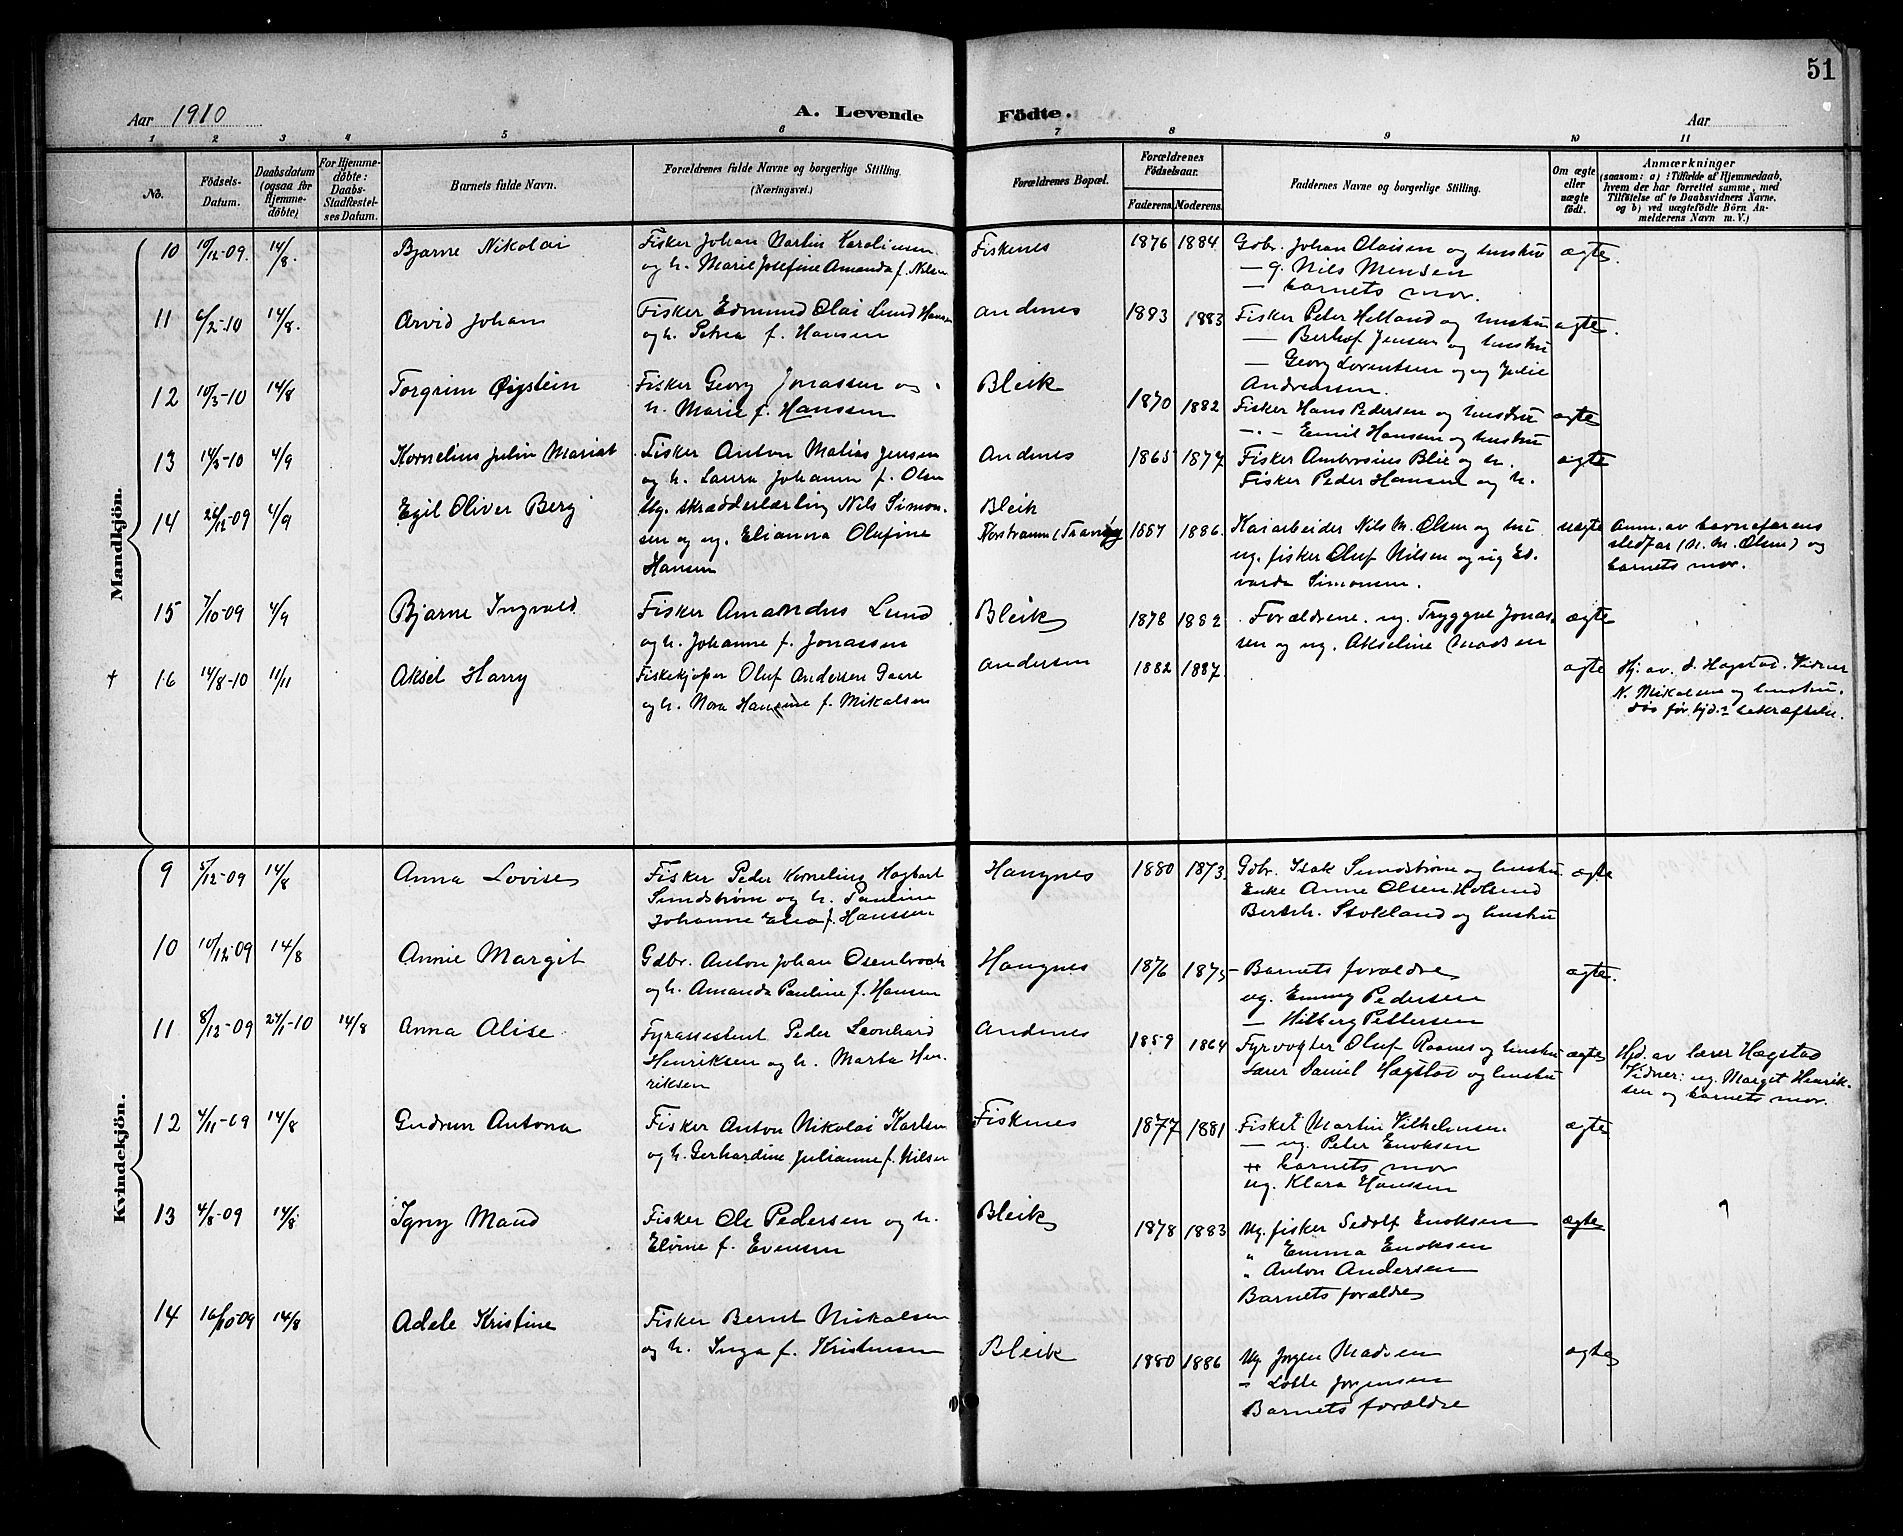 51
Aar 1910 A. Levende Födte. Aar
1 2 3 4 5 6 7 8 9 10 11
No. Födsels-Datum. Daabsdatum (ogsaa for Hjemmedöbte) For Hjemmedöbte: Daabs-Stadfæstelses Datum. Barnets fulde Navn. Forældrenes fulde Navne og borgerlige Stilling. (Næringsvei.) Forældrenes Bopæl. Forældrenes Födselsaar. Faderens. Moderens. Faddernes Navne og borgerlige Stilling. Om ægte eller uægte födt. Anmærkninger (saasom: a) i Tilfælde af Hjemmedaab, hvem der har forrettet samme, med Tilföielse af to Daabsvidners Navne, og b) ved uægtefödte Börn Anmelderens Navn m. V.)
Mandkjön.
10 10/12-09. 14/8. Bjarne Nikolai Fisker Johan Martin Karolinsen Fiskenes 1876 1884 Gdbr. Johan Olaisen og hustru ægte.
og h. Marie Josefine Amanda f. Nilsen — g. Nils Monsen
— barnets mor.
11 6/2-10 14/8. Arvid Johan Fisker Edmund Olai Lund Hansen Andenes 1883 1883 Fisker Peter Helland og hustru ægte.
og h. Petra f. Hansen — Berhof Jensen og hustru
— Georg Lorentsen og ug Julie
Andreassen.
12 10/3-10 14/8 Torgrim Øistein Fisker Georg Jonassen og Bleik 1870 1882 Fisker Hans Pedersen og hustru ægte
h. Marie f. Hanssen — Emil Hansen og hustru
13 14/3-10 4/9 Kornelius Julin Mariat Fisker Anton Matias Jensen Andenes 1865 1877 Fisker Ambrosius Blie og h. ægte
og h. Laura Johanna f. Olsen Fisker Peder Hansen og h.
14 26/12-09 4/9 Egil Oliver Berg Ug. skrædderlærling Nils Simonsen og ug. Elianora Olufine Hansen Bleik
1887 1886. Kaiarbeider Nils M. Olsen og hu uægte Anm. av barnefarens
ug. fisker Oluf Nilsen og ug Ed- stedfar (N. M. Olsen) og
varda Simonsen. barnets mor.
15 7/10-09 4/9 Bjarne Ingvald Fisker Amandus Lund Bleik 1878 1882 Forældrene. ug. Tryggve Jonas- ægte
og h. Johanne f. Jonassen sen og ug. Akseline Madsen
+ 16 14/8-10 11/11 Aksel Harry Fiskekjøper Oluf Andersen Andersen 1882 1887. ægte Hj. av. D. Hagstad. Vidner
og h. Nora f. Mikalsen N. Mikalsen og hustru.
død før bekræftelse.
Kvindekjön.
9 5/12-09 14/8 Anna Lovise Fisker Peder Kornelius Hagbart Haugnes 1880 1873. Gdbr. Isak Sundstrøm og hustru ægte
Sundstrøm og h. Pauline Enke Anne Olsen Holund
Johanne Elea f. Hanssen Stokland og hustru
10 10/12-09 14/8 Annie Margit Gdbr. Anton Johan Osenbroch Haugnes 1876 1875 Barnets forældre ægte.
og h. Amanda Pauline f. Hansen ug. Emmy Pedersen
— Hilberg Pettersen
11 8/12-09 27/1-10 14/8 Anna Alise Fyrassistent Peder Leonhard Andenes 1859 1864 Fyrvogter Oluf Raanes og hustru ægte Hjd. av lærer Hægstad
Henriksen og h. Marta Hen- Lærer Daniel Hægstad og hustru Vidner: ug. Marget Henrik-
riksen sen og barnets mor.
12 4/11-09 14/8 Gudrun Antona Fisker Anton Nikolai Karlsen Fiskenes 1877 1881 Fisker Martin Vilhelmsen ægte
og h. Gerhardine Julianne f. Nilsen — ug. Peter Enoksen
barnets mor
ug. Klara Hansen
13 4/8-09 14/8 Igny Maud Fisker Ole Pedersen og h. Bleik 1878 1883 Ug. fisker Sedolf Enoksen ægte
Elvine f. Evensen " Emma Enoksen
" Anton Andersen
Barnets forældre
14 16/10-09 14/8 Adele Kristine Fisker Bernt Nikalsen Bleik 1880 1886 Ug. Jørgen Madsen ægte
og h. Inga f. Kristensen — Lotte Jørgensen
Barnets forældre